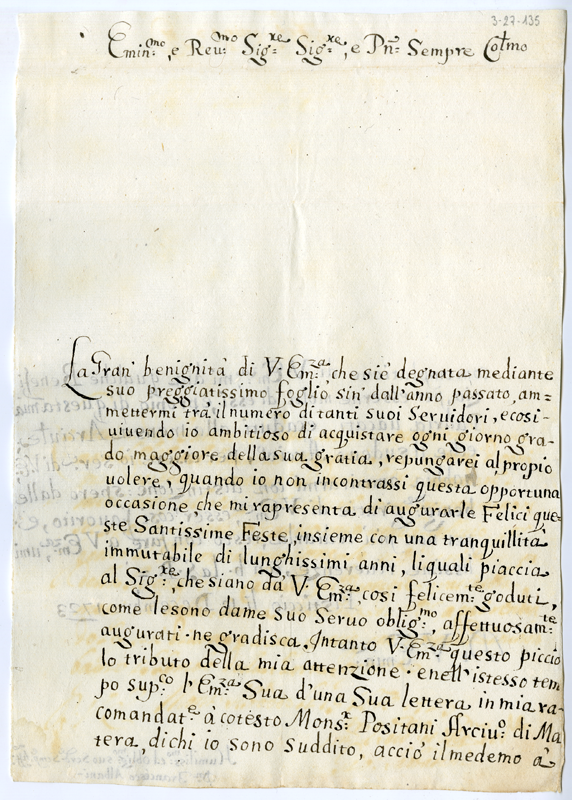 3-27-135
Emin:mo, e Reu:mo Sig:re Sig:re, e Pn̄: Sempre Colmo
La Gran benignità di V. Em:za, che siè degnata mediante
suo preggiatissimo foglio sin' dall'anno passato, am=
mettermi trà il numero di tanti suoi Seruidori, ecosi-
uiuendo io ambitioso di acquistare ogni giorno gra-
do maggiore della sua gratia, repungarei al propio
uolere, quando io non incontrassi questa opportuna
occasione che mi rapresenta di augurarle Felici que-
ste Santissime Feste, insieme con una tranquillità
immutabile di lunghissimi anni, li quali piaccia
al Sig:re, che siano da V. Em:za cosi felicem:te goduti,
come le sono dame suo Seruo oblig:mo, affettuosam:te
augurati. ne gradisca, Intanto V. Em:za questo piccio
lo tributo della mia attenzione. e nell'istesso tem
po sup:co l'Em:za Sua d'una Sua lettera in mia ra-
comandat:e à cotesto Mons:r Positani Arciuo: di Ma
tera, di chi io sono suddito, acciò il medemo à